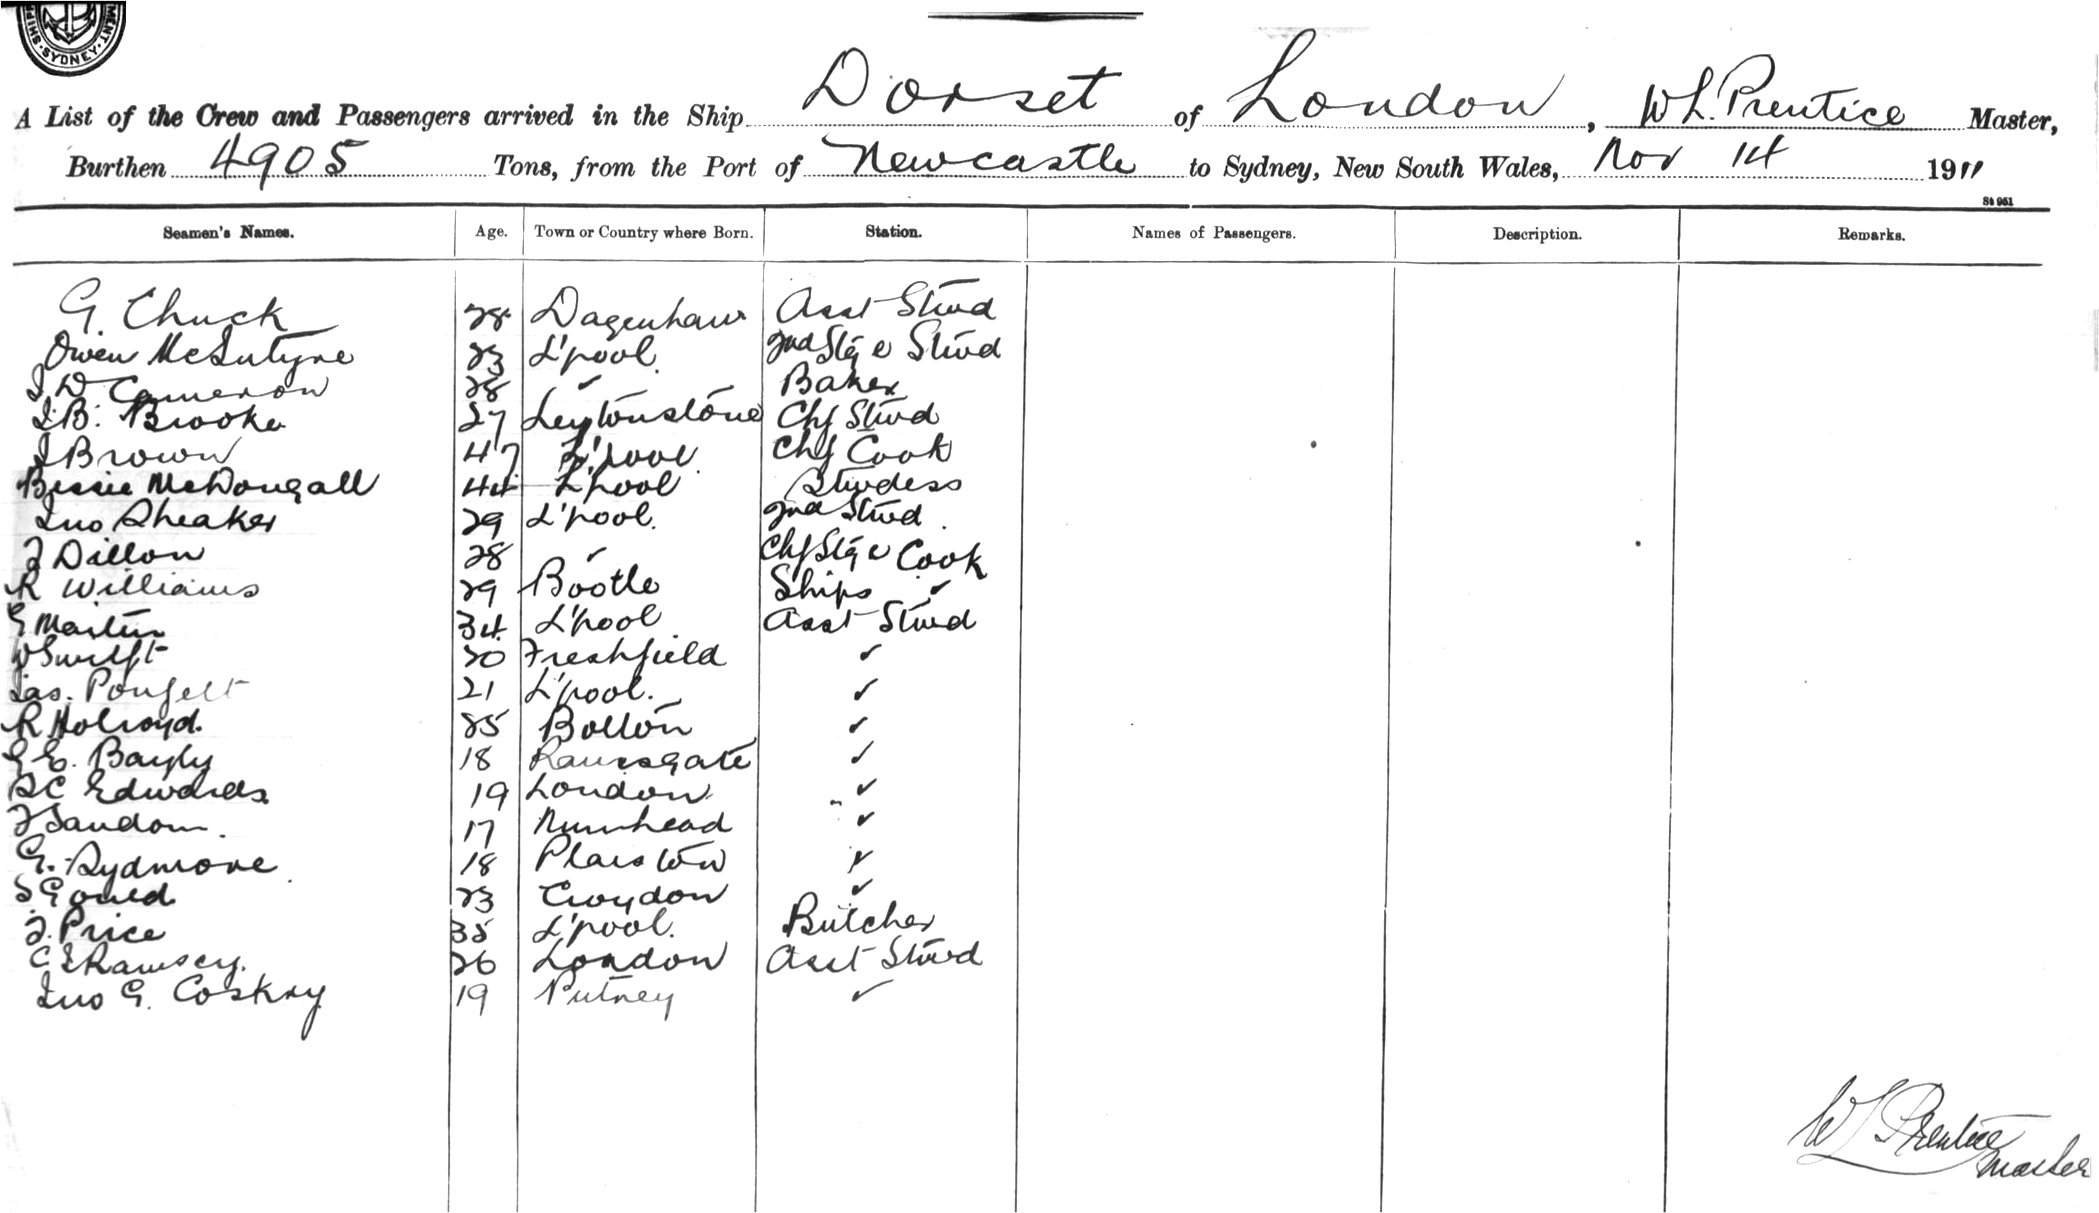 SHIP MENT. SYDNEY.
A List of the Crew and Passengers arrived in the Ship Dorset of London, W L. Prentice Master,
Burthen 4905 Tons, from the Port of Newcastle to Sydney, New South Wales, Nov 14 1911
St 951
Seamen's Names. Age. Town or Country where Born. Station. Names of Passengers. Description. Remarks.
G. Chuck 28 Dagenham Asst Stwd
Owen McIntyre 23 L'pool. 2nd Stge Stwd
J D Cameron 28 ✓ Baker
J. B. Brooke 27 Leytonstone Chf Stwd
J Brown 47 L'pool. Chf Cook
Bessie McDougall 44 L'pool Stwdess
Jno Sheaker 29 L'pool. 2nd Stwd.
J Dillon 28 ✓ Chf Stge Cook
R Williams 29 Bootle Ships ✓
G Martin 34 L'pool. Asst Stwd
W Swift 20 Freshfield ✓
Jas. 21 L'pool. ✓
R Holroyd. 25 Bolton ✓
G E. Bayly 18 Ramsgate ✓
C Edwards 19 London ✓
J Sandom. 17 Nunhead ✓
G. Sydmore 18 Plaistow ✓
S Gould 23 Croydon ✓
J. Price 35 L'pool. Butcher
C E Ramsey. 26 London Asst Stwd
Jno G. Coskry 19 Putney ✓
W L Prentice
Master